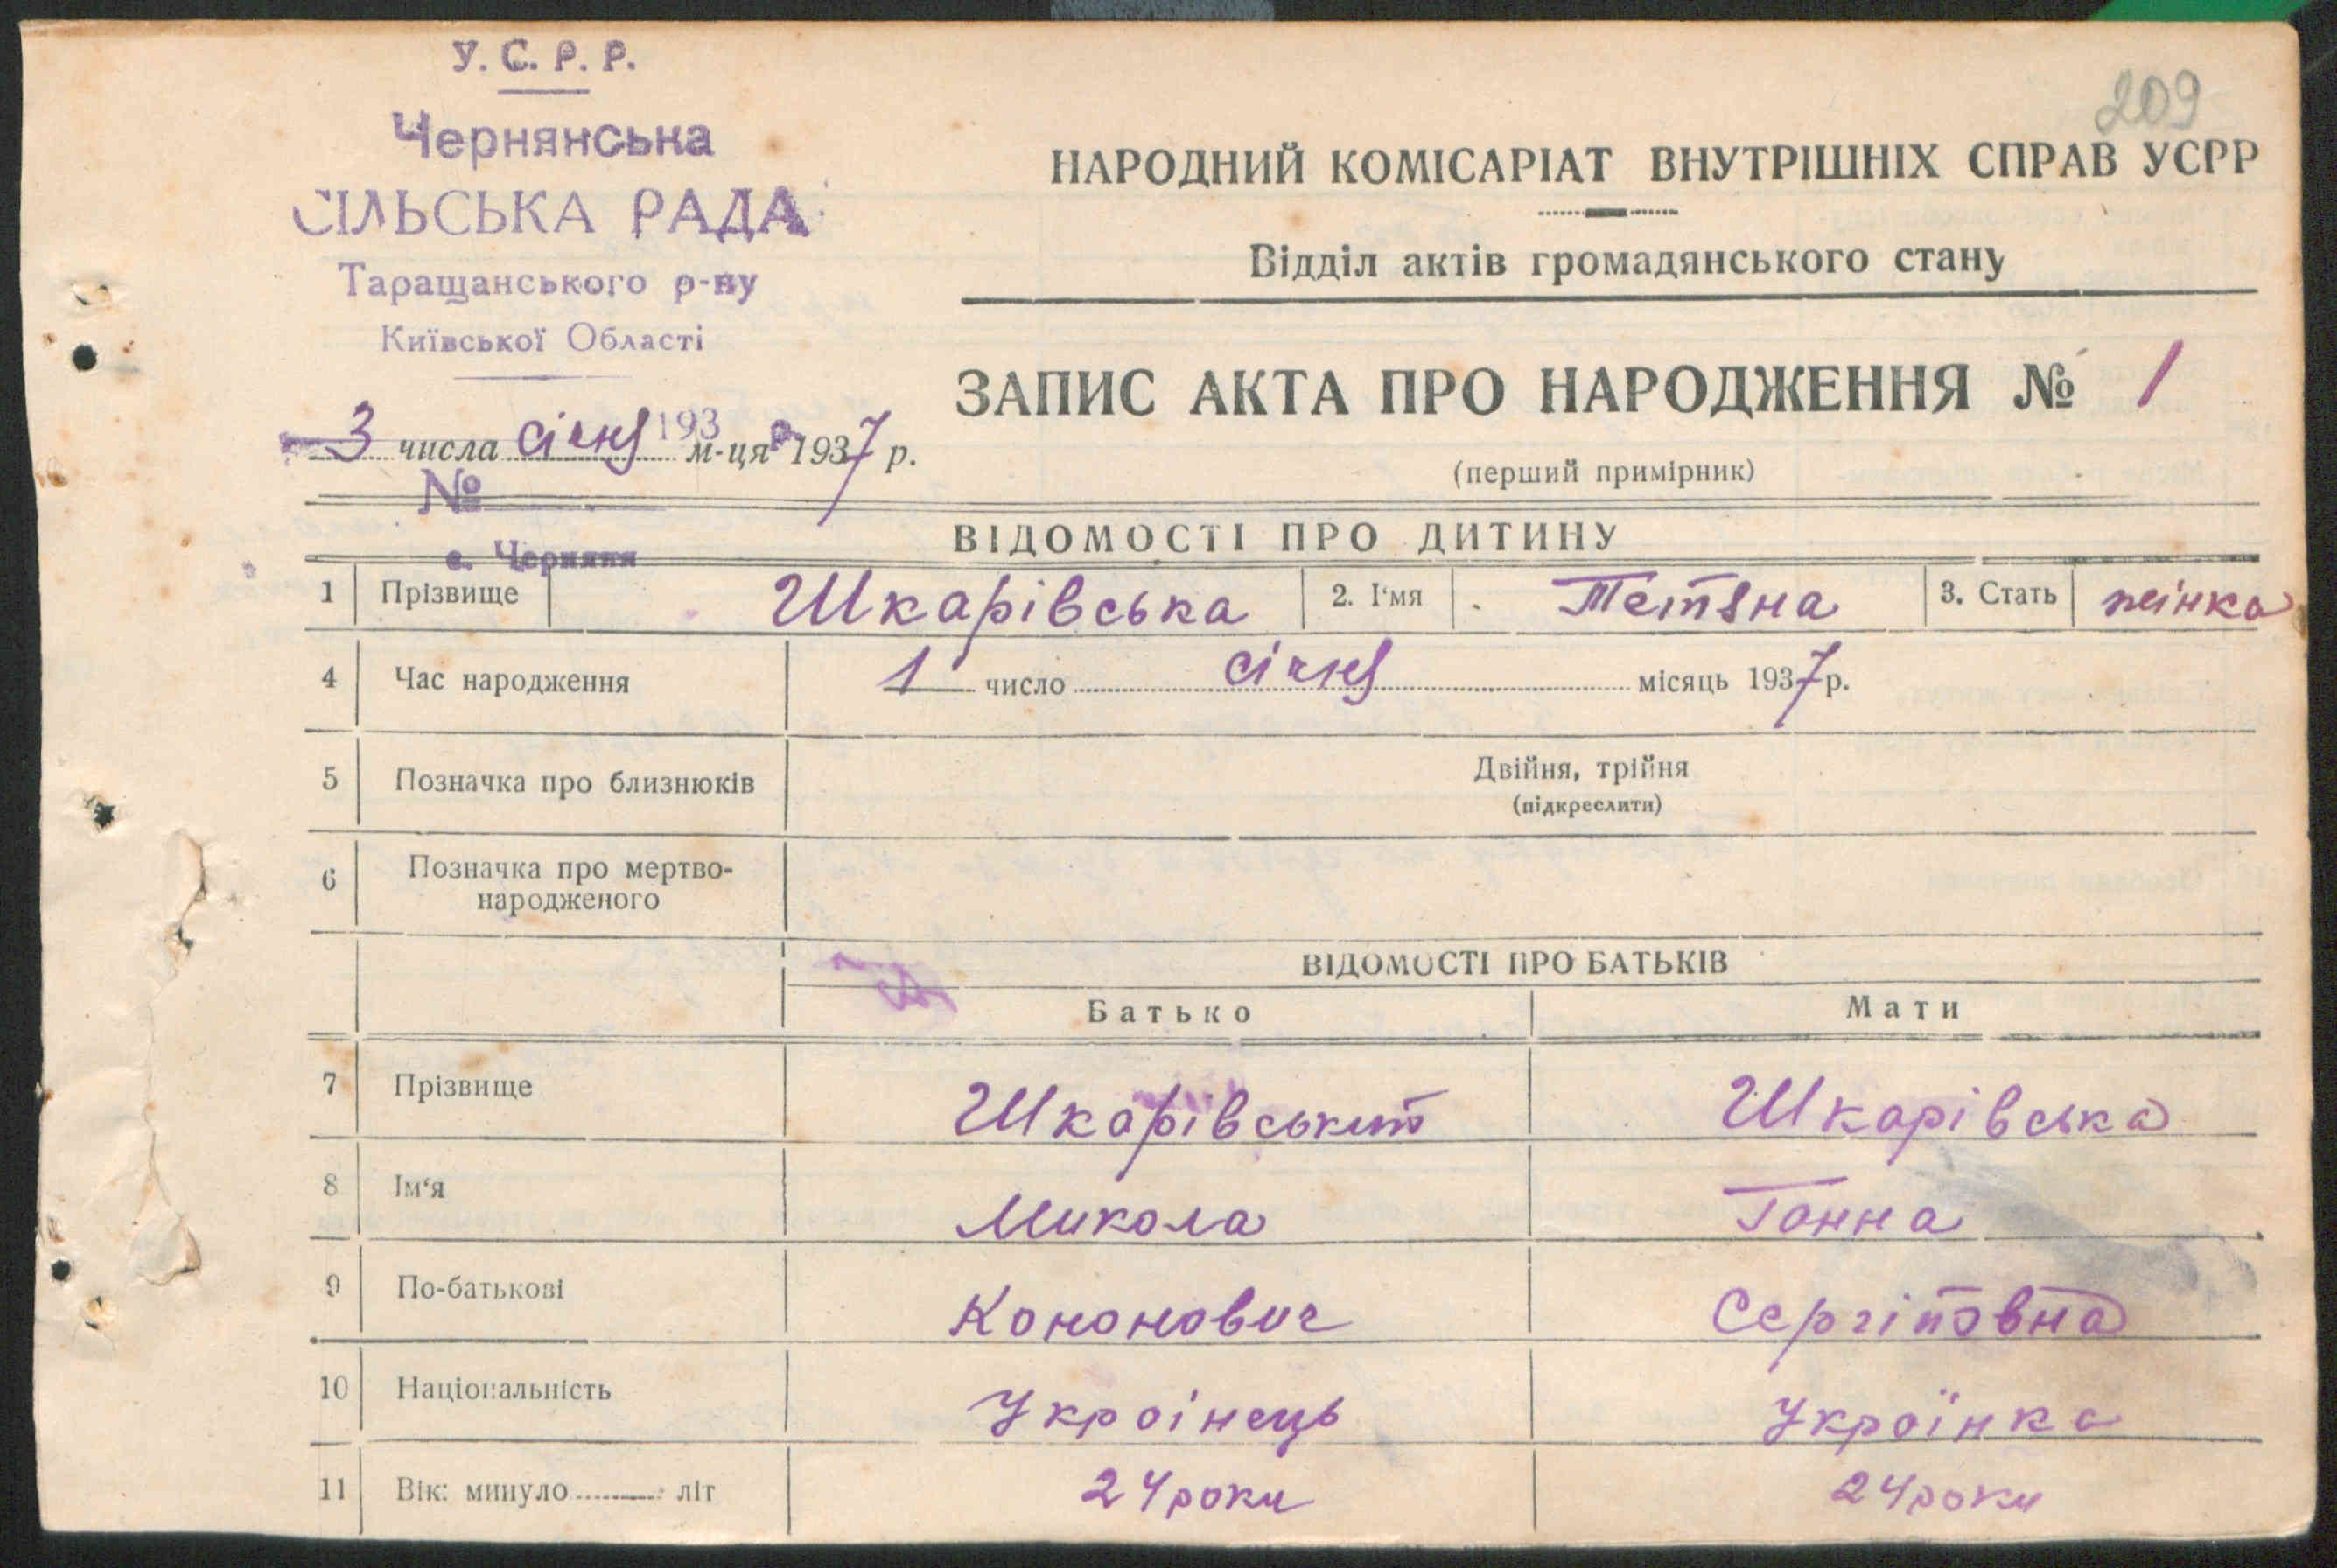 У. С. Р. Р.
Чернянська
СІЛЬСЬКА РАДА
Таращанського р-ну
Київської Області
3 числа січня 193 м-ця р 1937 р.
№
с. Черняхи
209
НАРОДНИЙ КОМІСАРІАТ ВНУТРІШНІХ СПРАВ УСРР
Відділ актів громадянського стану
ЗАПИС АКТА ПРО НАРОДЖЕННЯ № 1
(перший примірник)
ВІДОМОСТІ ПРО ДИТИНУ
1 Прізвище Шкарівська 2. І'мя Тетяна 3. Стать жінка
4 Час народження 1 число січня місяць 1937 р.
5 Позначка про близнюків Двійня, трійня
(підкреслити)
6 Позначка про мертво-
народженого
ВІДОМОСТІ ПРО БАТЬКІВ
Батько Мати
7 Прізвище Шкарівський Шкарівська
8 Ім'я Микола Ганна
9 По-батькові Кононович Сергійовна
10 Національність Українець Українка
11 Вік: минуло ........ літ 24 роки 24 роки